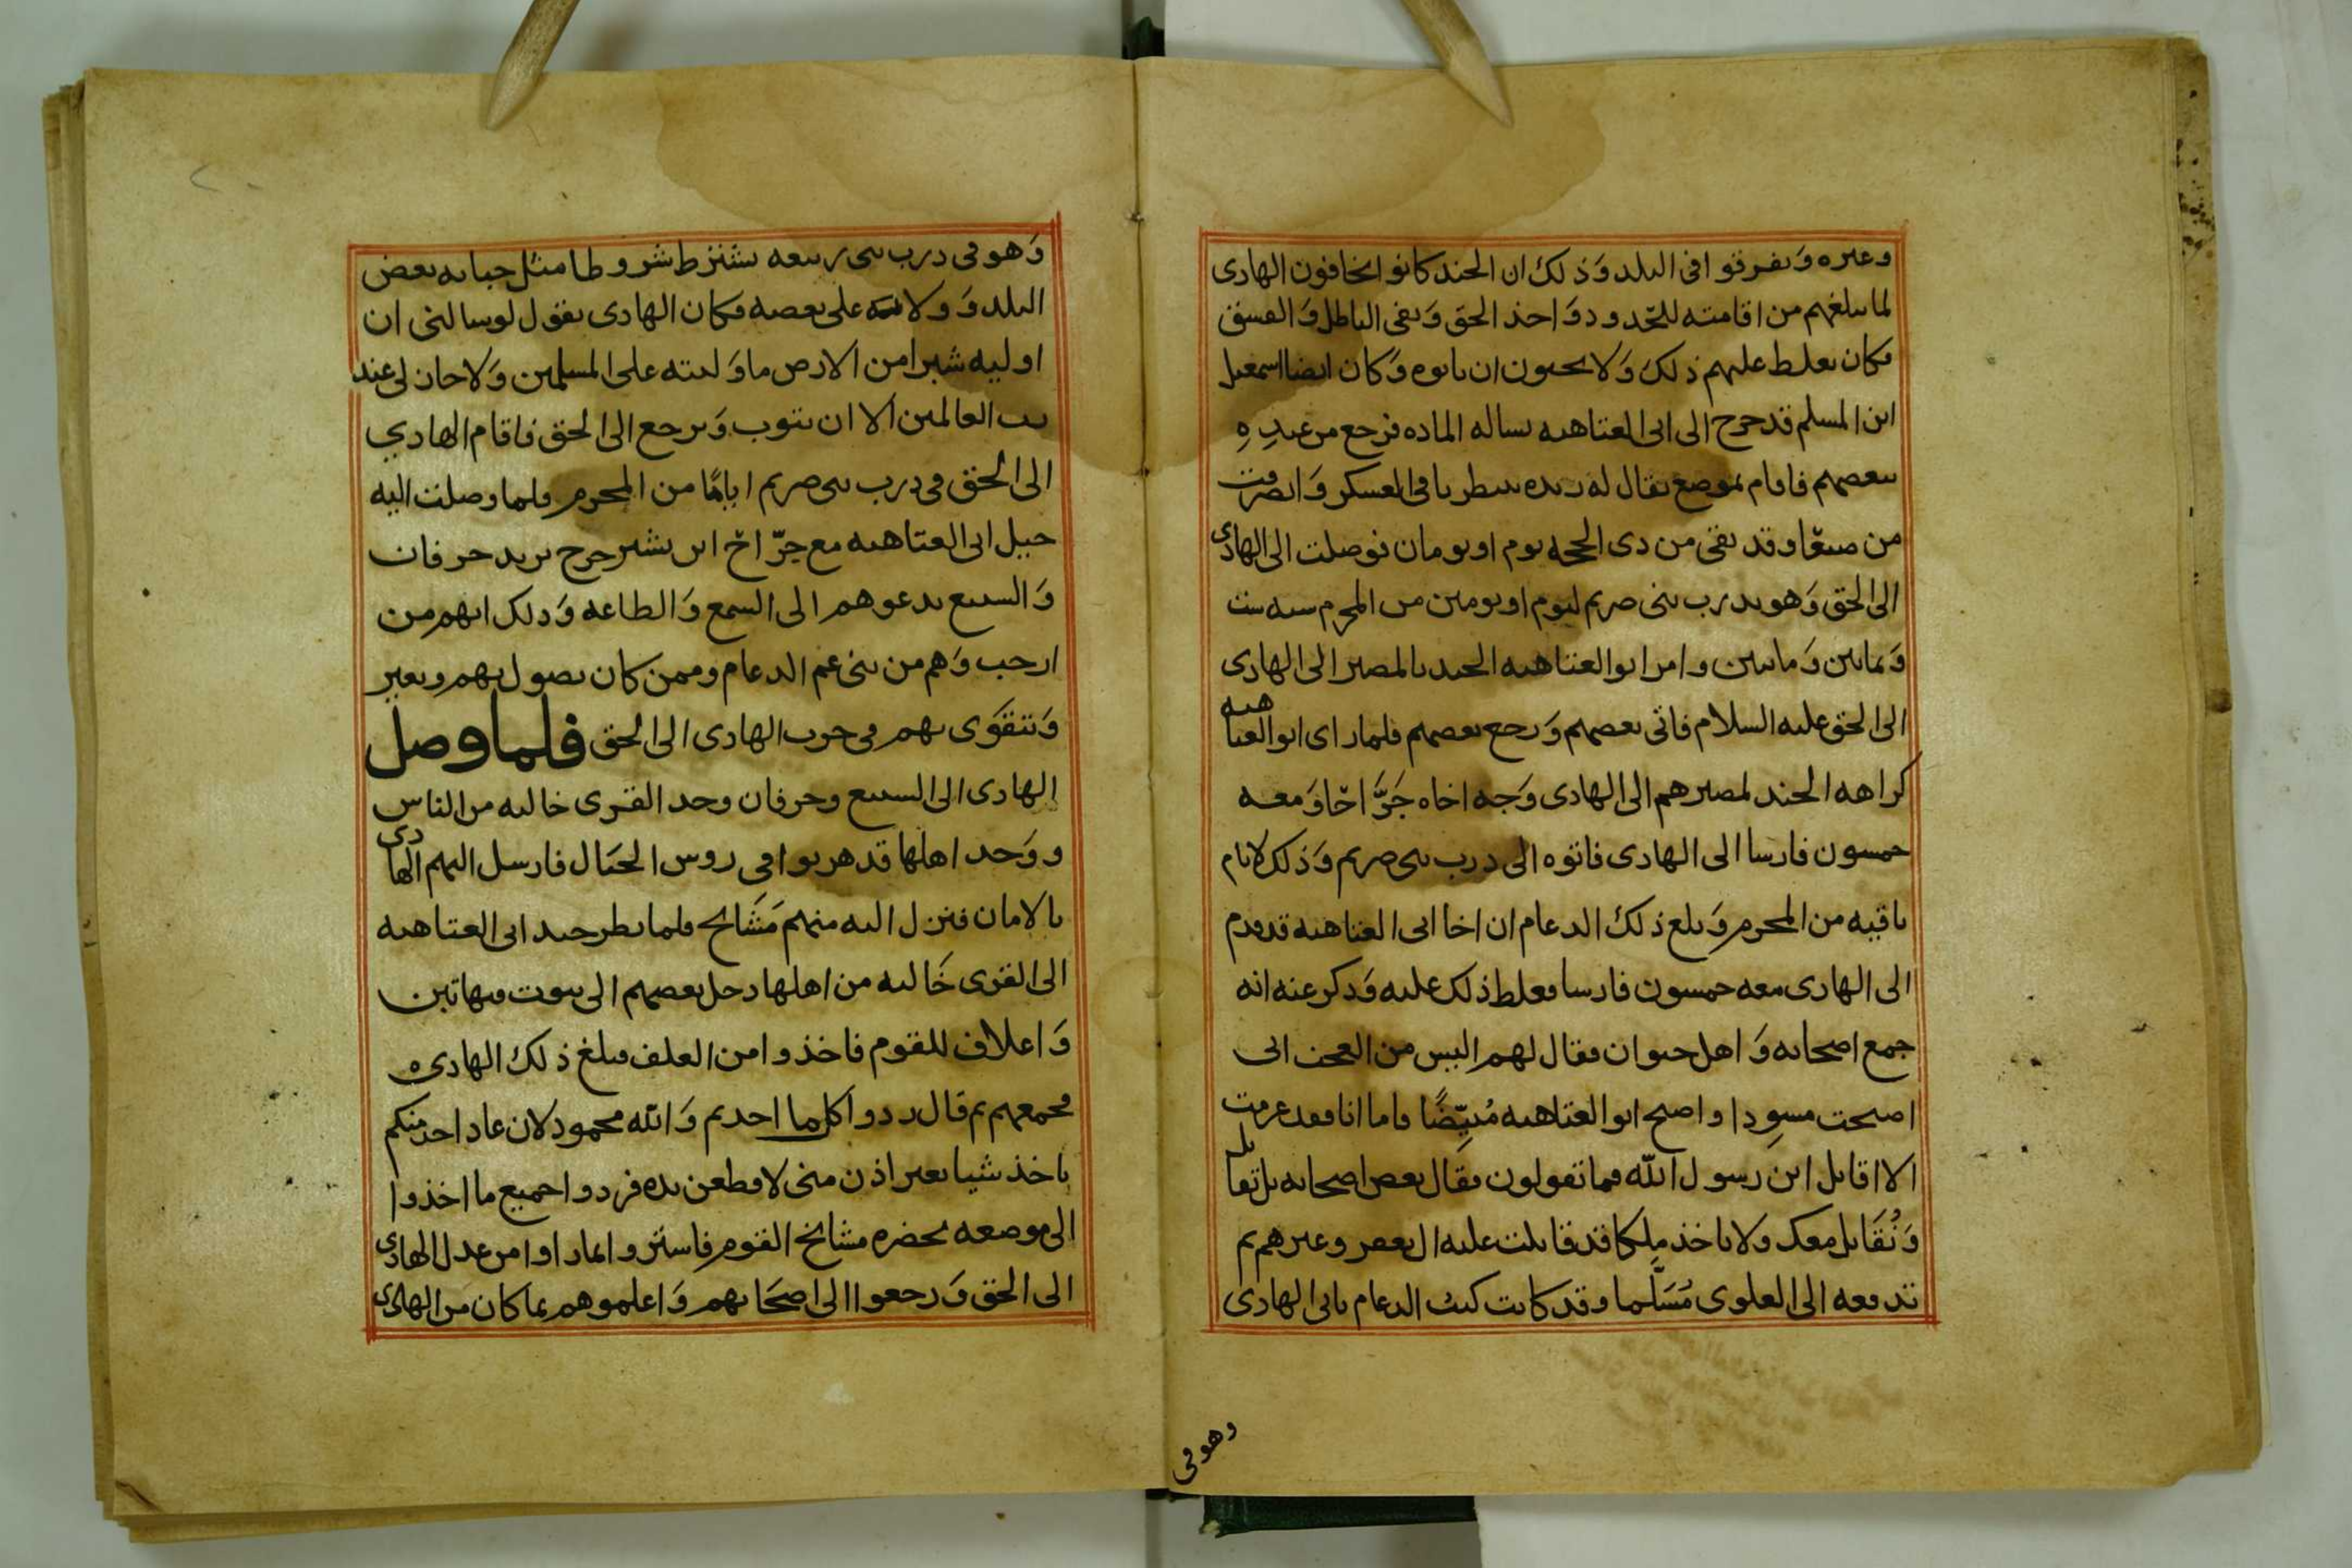 وغيره وتفرقوا في البلد وذلك ان الجند كانوا يخافون الهادى
لما يبلغهم من اقامته للحّدود وَاخذ الحق وَنفى الباطل وَالفسق
فكان يغلظ عليهم ذلك وَلا يحبون ان ياتوه وَكان ايضا اسمعيل
ابن المسلم قد خرج الى ابى العتاهيه يساله الماده فرجع من عندِهِ
ببعضهم فاقام بموضع يقال له ريده ينتظر باقى العسكر وَانصرفت
من صنعا وقد بقى من ذى الحجه يوم او يومان فوصلت الى الهادى
الى الحق وَهو بدرب بنى صريم ليوم او يومين من المحرم سنه ست
وَثمانين وَمايتين وامر ابو العتاهيه الجند بالمصير الى الهادى
الى الحق عليه السلام فاتى بعضهم وَرجع بعضهم فلما راى ابو العتاهيه
كراهه الجند لمصيرهم الى الهادى وَجه اخاه جَرَّاخا وَمعه
خمسون فارسا الى الهادى فاتوه الى درب بنى صريم وَذلك لايام
باقيه من المحرم وَبلغ ذلك الدعام ان اخا ابى العتاهيه قد قدم
الى الهادى معه خمسون فارسا فغلظ ذلك عليه وَذكر عنه انه
جمع اصحابه وَاهل خيوان فقال لهم اليس من العجب انى
اصبحت مسوِدا واصبح ابو العتاهيه مُبيّضًا فاما انا فقد عزمت
الا اقاتل ابن رسول الله فما تقولون فقال بعض اصحابه بل تقاتل
وَنُقَاتل معك ولا ياخذ مِلكا قد قاتلت عليه ال يعفر وغيرهم ثم
تدفعه الى العلوى مُسَلّما وقد كانت كتب الدعام تاتى الهادى
وهو في
وَهو فى درب بنى ربيعه يشترط شروطا مثل جبايه بعض
البلد وَولايته على بعضه فكان الهادى يقول لو سالنى ان
اوليه شبرا من الارض ما وَليته على المسلمين وَلا جاز لى عند
رب العالمين الا ان يتوب وَيرجع الى الحق فاقام الهادي
الى الحق فى درب بنى صريم ايامًا من المحرم فلما وصلت اليه
خيل ابى العتاهيه مع جرّاخ ابن بشير خرج يريد حرفان
وَالسبيع يدعوهم الى السمع وَالطاعه وَذلك انهم من
ارحب وَهم من بنى عم الدعام وممن كان يصول بهم ويغير
وَيتقوَى بهم فى حرب الهادى الى الحق فلما وصل
الهادى الى السبيع وحرفان وجد القرى خاليه من الناس
ووَجد اهلها قد هربوا فى روس الجبَال فارسل اليهم الهادى
بالامان فنزل اليه منهم مَشَايخ فلما نظر جند ابى العتاهيه
الى القرى خَاليه من اهلها دخل بعضهم الى بيوت فيها تبن
وَاعلاف للقوم فاخذوا من العلف فبلغ ذلك الهادى
فجمعهم ثم قال ردوا كل ما اخذتم وَالله محمود لان عاد احد منكم
ياخذ شيا بغير اذن منى لاقطعن يده فردوا جميع ما اخذوا
الى موضعه بحضره مشايخ القوم فاستروا لما راوا من عدل الهادى
الى الحق وَرجعوا الى اصحَابهم وَاعلموهم بما كان من الهادى